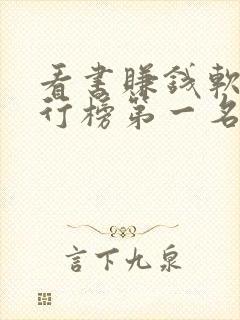 看書賺錢軟
行榜第一名
言下九泉